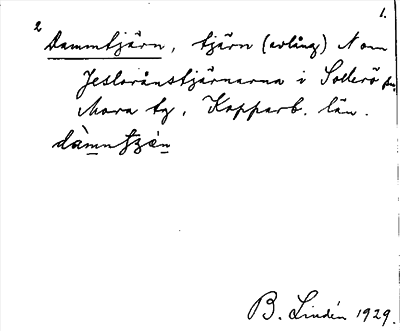 1.
2 Dammtjärn, tjärn (avlång) N om
Jesloränstjärnarna i Sollerö sn,
Mora tg, Kopparb. län.
B. Lindén 1929.